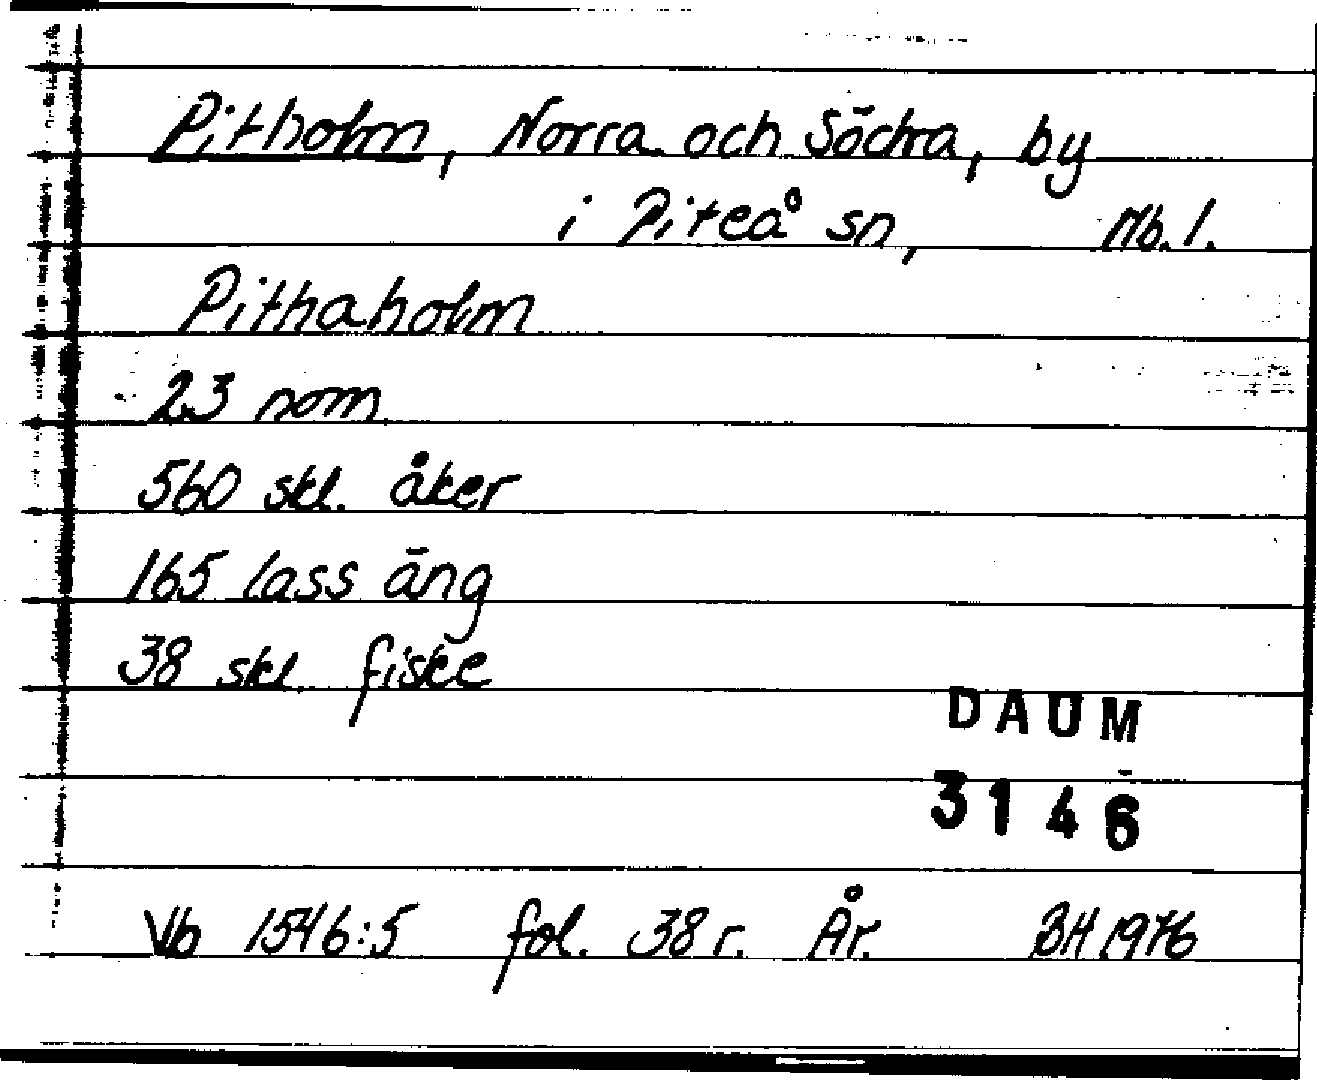 Pitholm, Norra och Södra, by
i Piteå sn, Nb. l.
Pithaholm
23 nom
560 skl. åker
165 lass äng
38 skl. fiske
DAUM
3146
Vb 1546:5 fol. 38 r. År. BH 1976